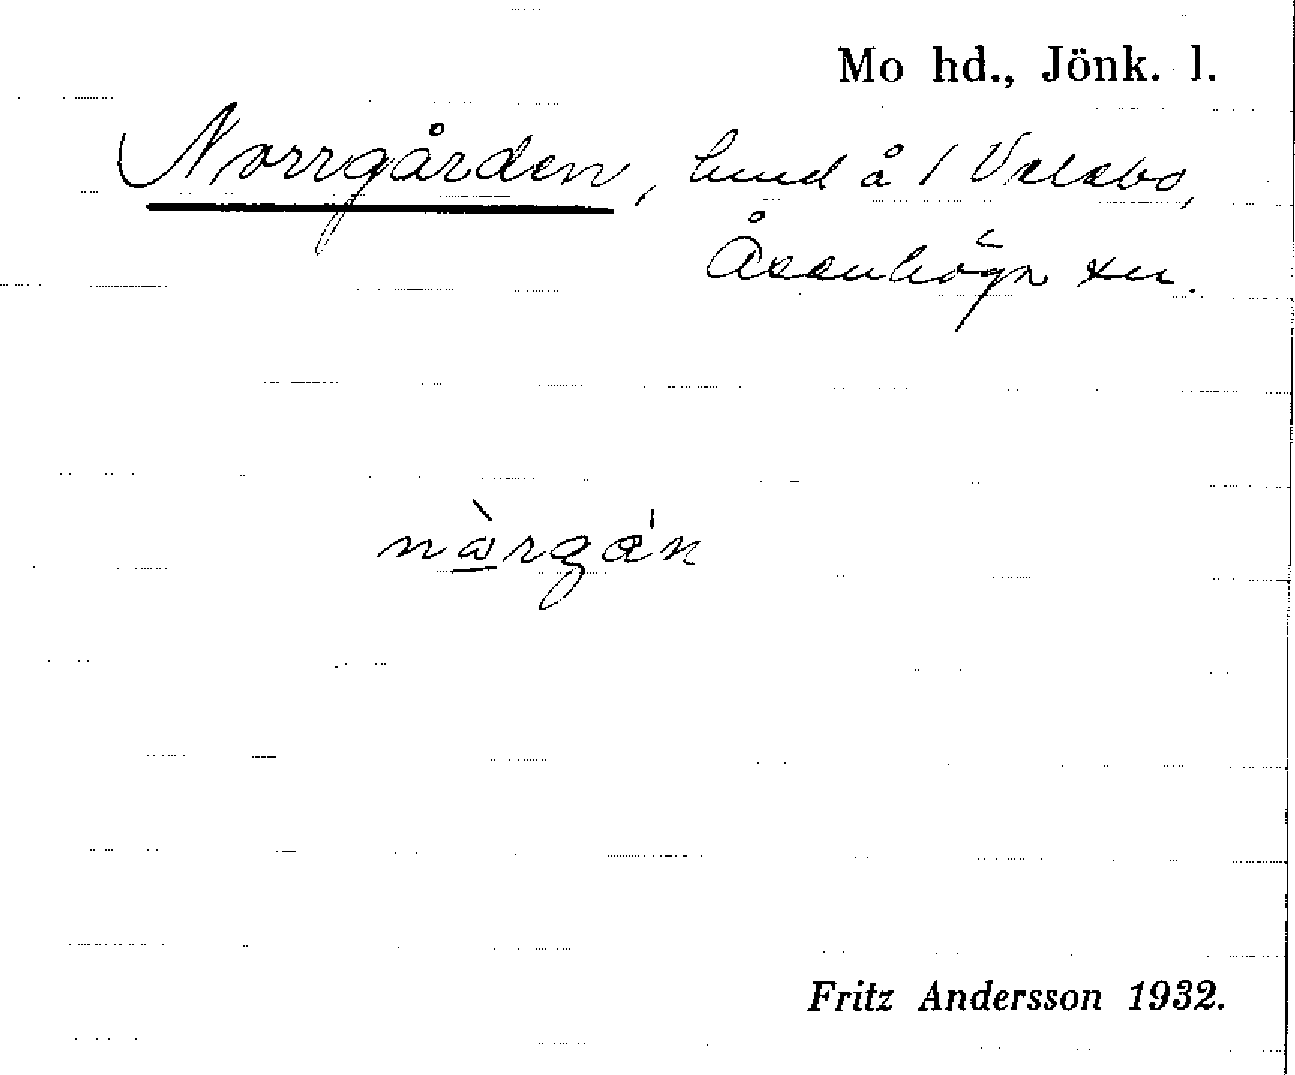 Mo hd., Jönk. l.
Norrgården, hmd å 1 Valsbo,
Åsenhöga sn.
nàrgan
Fritz Andersson 1932.